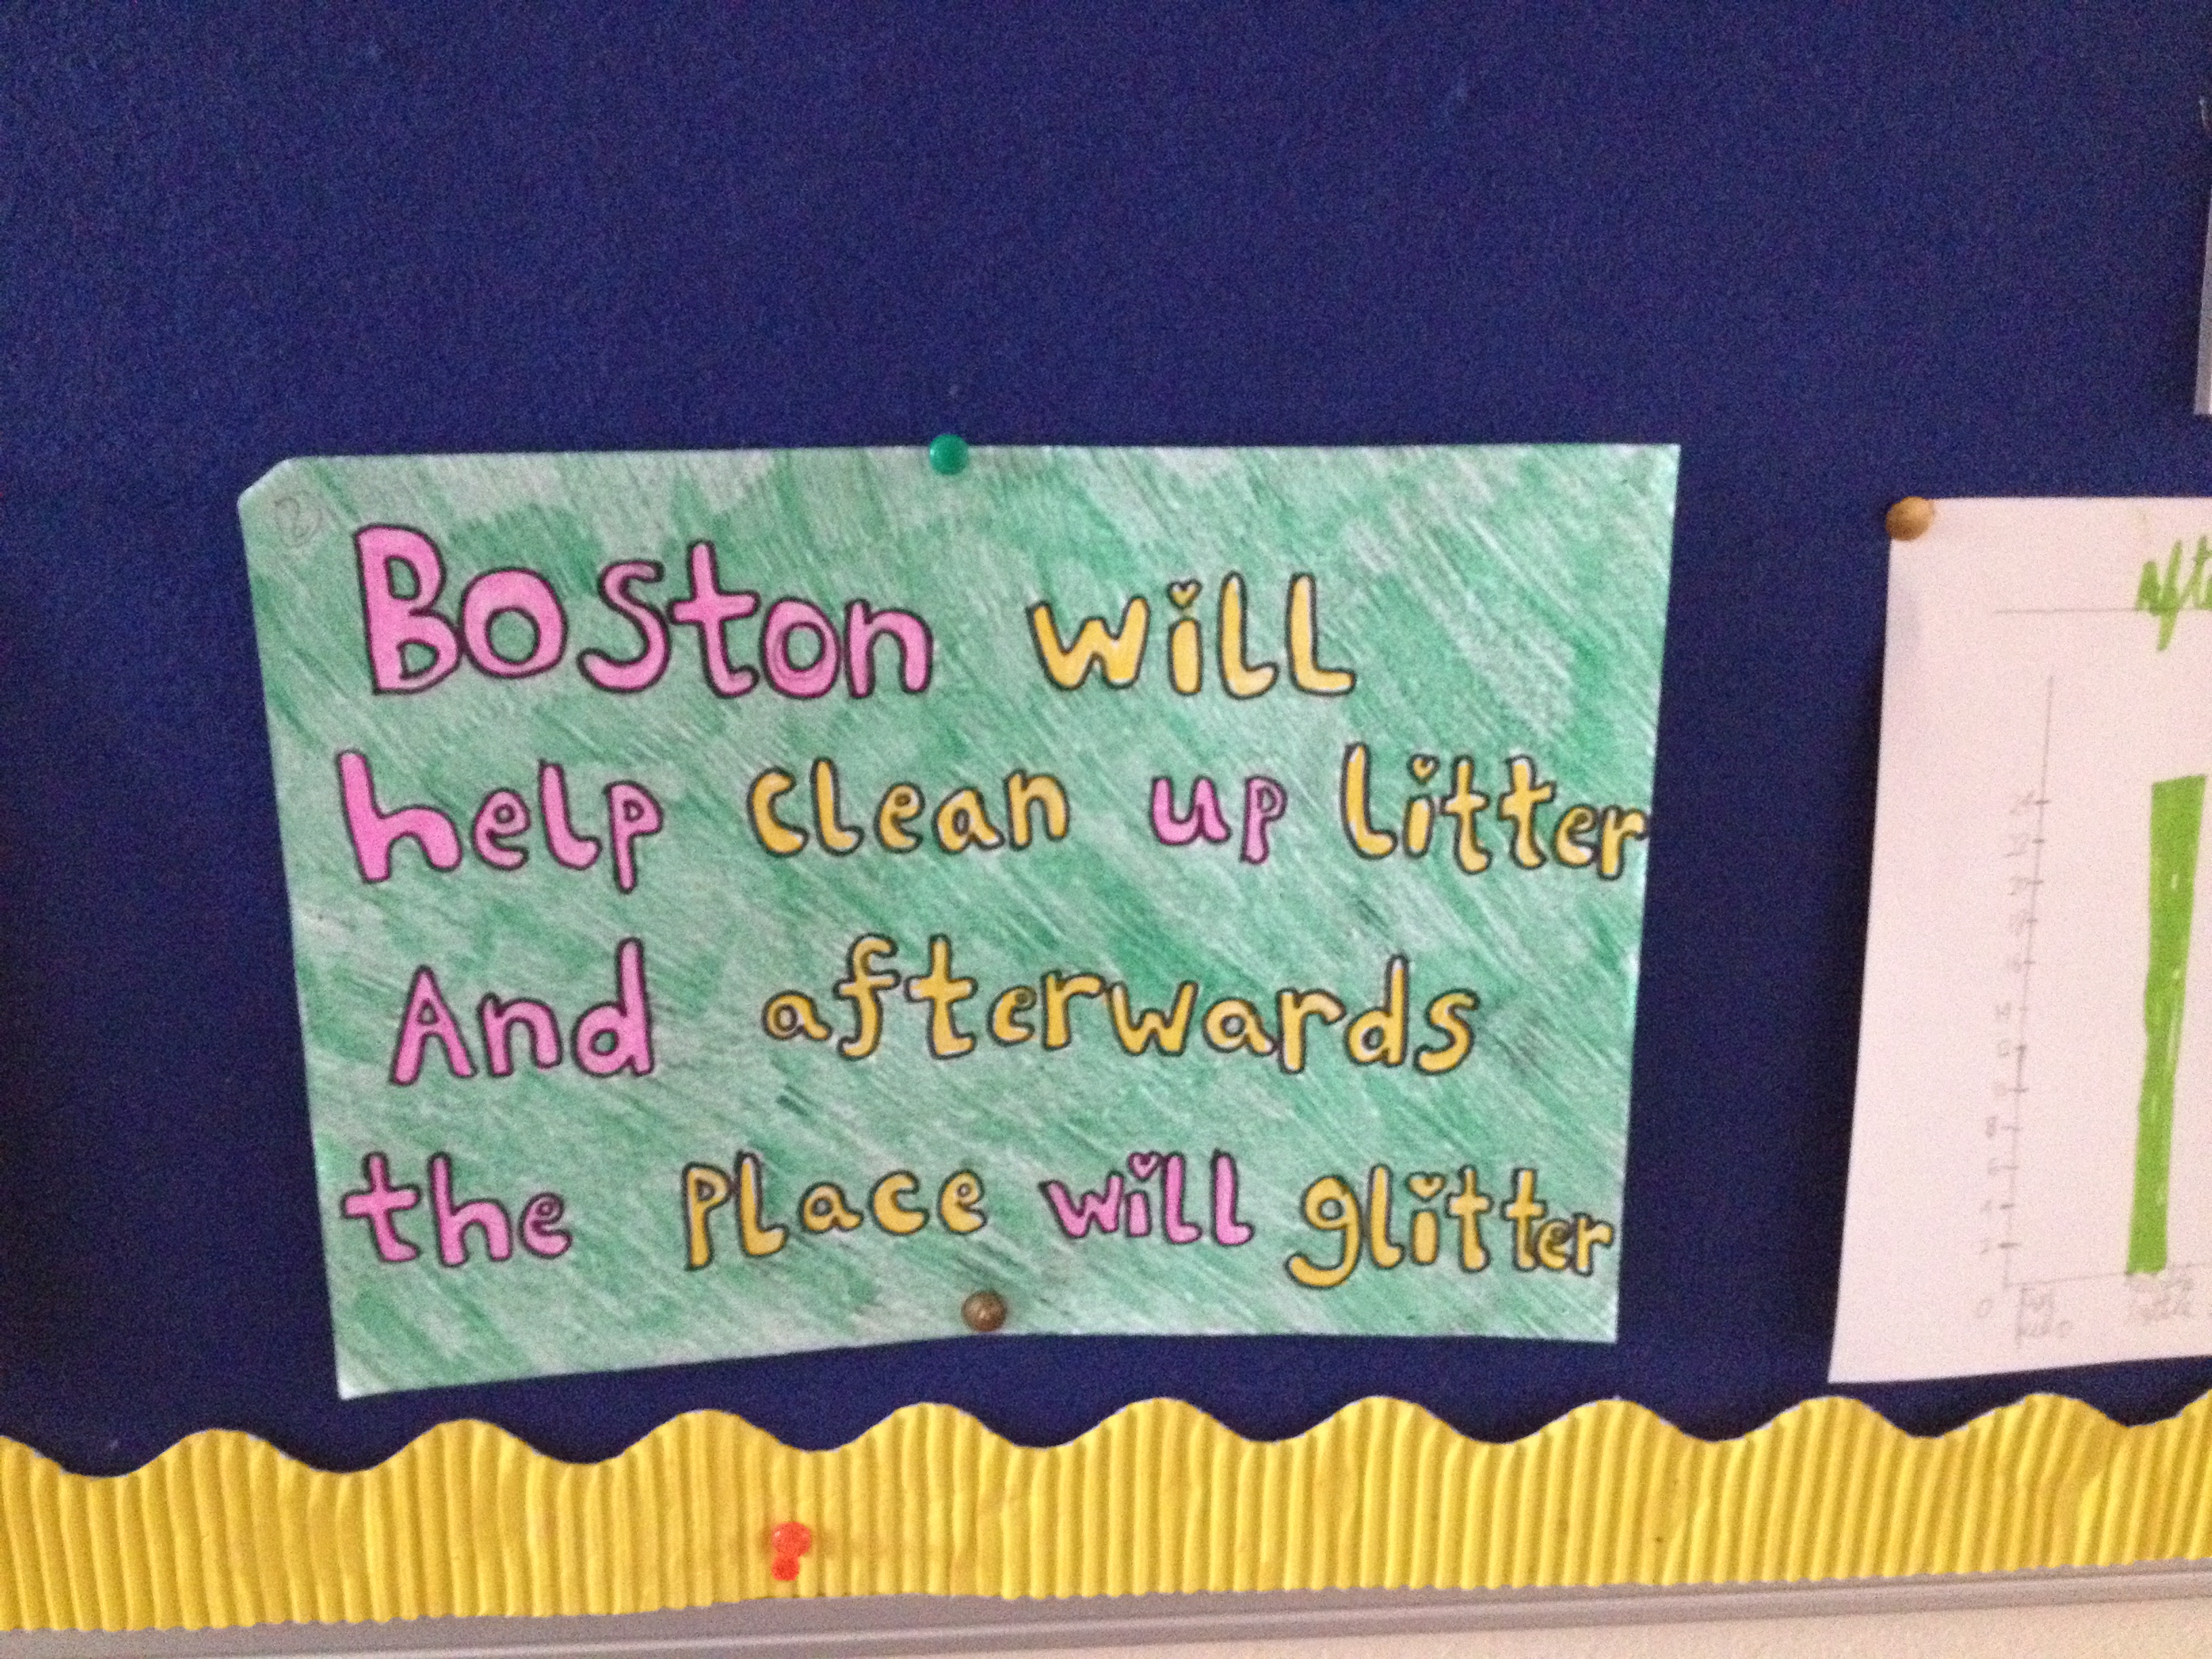 2
Boston will
help clean up litter
And afterwards
the place will glitter